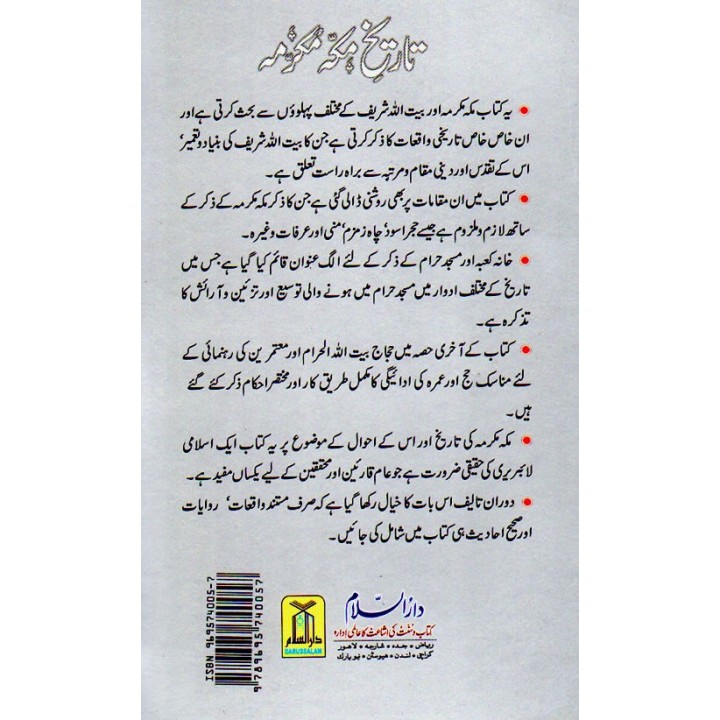 تاریخ مکّہ مکرّمہ
• یہ کتاب مکہ مکرمہ اور بیت اللہ شریف کے مختلف پہلوؤں سے بحث کرتی ہے اور
ان خاص خاص تاریخی واقعات کا ذکر کرتی ہے جن کا بیت اللہ شریف کی بنیاد و تعمیر‘
اس کے تقدس اور دینی مقام و مرتبہ سے براہ راست تعلق ہے۔
• کتاب میں ان مقامات پر بھی روشنی ڈالی گئی ہے جن کا ذکر مکہ مکرمہ کے ذکر کے
ساتھ لازم و ملزوم ہے جیسے حجر اسود‘ چاہ زمزم‘ منی اور عرفات وغیرہ۔
• خانہ کعبہ اور مسجد حرام کے ذکر کے لئے الگ عنوان قائم کیا گیا ہے جس میں
تاریخ کے مختلف ادوار میں مسجد حرام میں ہونے والی توسیع اور تزئین و آرائش کا
تذکرہ ہے۔
• کتاب کے آخری حصہ میں حجاج بیت اللہ الحرام اور معتمرین کی رہنمائی کے
لئے مناسک حج اور عمرہ کی ادائیگی کا مکمل طریق کار اور مختصر احکام ذکر کئے گئے
ہیں۔
• مکہ مکرمہ کی تاریخ اور اس کے احوال کے موضوع پر یہ کتاب ایک اسلامی
لائبریری کی حقیقی ضرورت ہے جو عام قارئین اور محققین کے لیے یکساں مفید ہے۔
• دوران تالیف اس بات کا خیال رکھا گیا ہے کہ صرف مستند واقعات‘ روایات
اور صحیح احادیث ہی کتاب میں شامل کی جائیں۔
دارُالسّلام
کتاب و سنت کی اشاعت کا عالمی ادارہ
ریاض • جدہ • شارجہ • لاہور
کراچی • لندن • ہیوسٹن • نیو یارک
دارالسلام
DARUSSALAM
ISBN 969574005-7
9 789695 740057